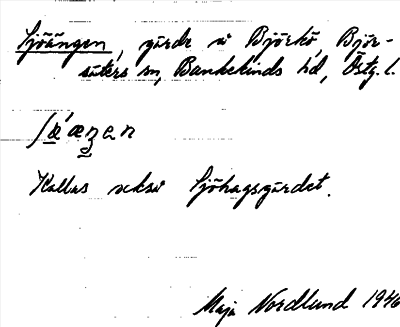 Sjöängen, gärde i Björkö, Björ-
säters sn, Bankekinds hd, Östg. l.
Kallas också Sjöhagsgärdet.
Maja Nordlund 1946